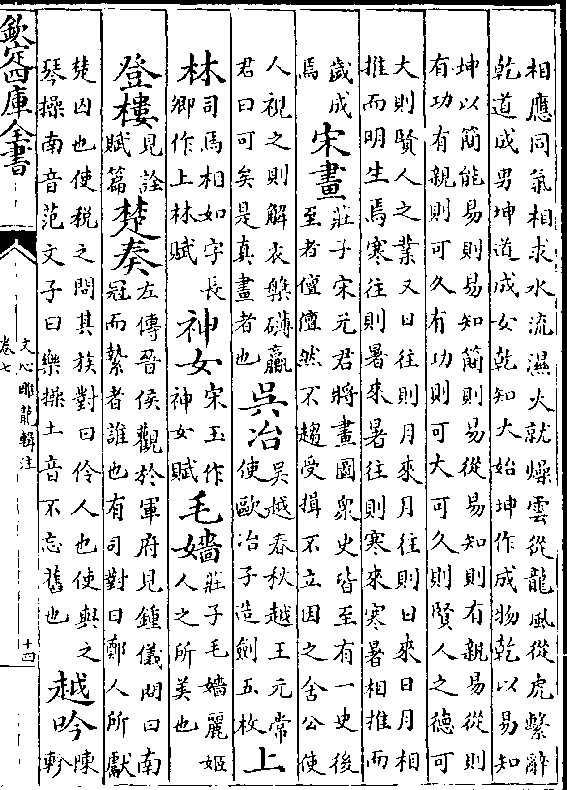 相應同氣相求水流濕火就燥雲從龍風從虎繫辭
乾道成男坤道成女乾知大始坤作成物乾以易知
坤以簡能易則易知簡則易從易知則有親易從則
有功有親則可久有功則可大可久則賢人之德可
大則賢人之業又日往則月來月往則日來日月相
推而明生焉寒往則暑來暑往則寒來寒暑相推而
歲成
焉
宋畫
莊子宋元君將畫圖衆史皆至有一史後
至者儃儃然不趨受揖不立因之舍公使
人視之則解衣槃礴臝
君曰可矣是真畫者也
吳冶
吳越春秋越王元常
使歐冶子造劍五枚
上
林
司馬相如字長
卿作上林賦
神女
宋玉作
神女賦
毛嬙
莊子毛嬙麗姬
人之所美也
登樓
見詮
賦篇
楚奏
左傳晉侯觀於軍府見鍾儀問曰南
冠而縶者誰也有司對曰鄭人所獻
楚囚也使稅之問其族對曰伶人也使與之
琴操南音范文子曰樂操土音不忘舊也
越吟
陳
軫
欽定四庫全書
文心雕龍輯注
卷七
十四